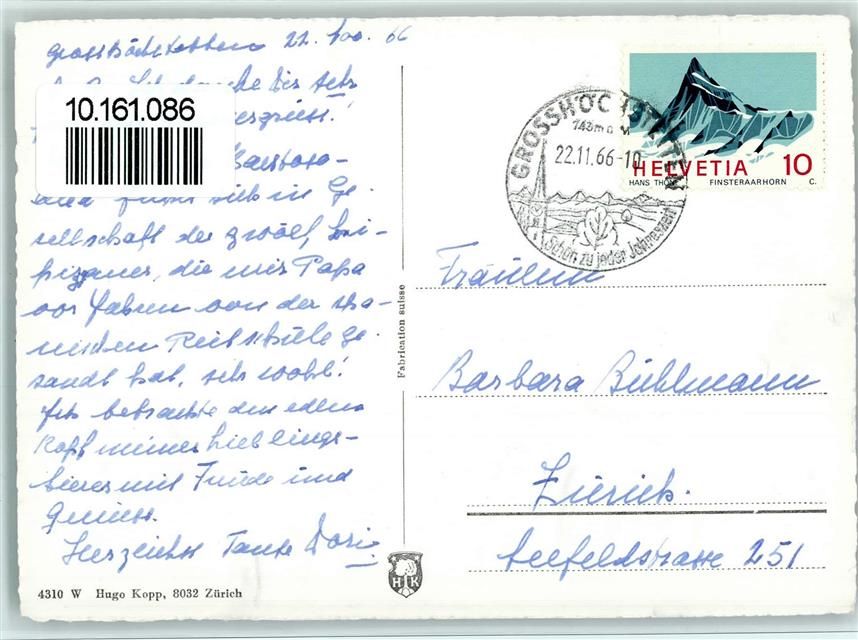 Grosshöchstetten 22. Nov. 66
danke Dir sehr
10.161.086
Barbara
und fühlt sich in Ge-
sellschaft der zwölf Lipi-
pizzaner, die mir Papa
vor Jahren von der spa-
nischen Reitschule ge-
sandt hat, sehr wohl!
Ich betrachte den edlen
Kopf meines Lieblings-
tieres mit Freude und
Genuss.
Herzlichst Tante Dori
4310 W Hugo Kopp, 8032 Zürich
Fabrication suisse
HK
GROSSHÖCHSTETTEN
743 m ü M
22.11.66-10
Schön zu jeder Jahreszeit
HELVETIA 10
HANS THÖNI FINSTERAARHORN C.
Fräulein
Barbara Bühlmann
Zürich.
Seefeldstrasse 251